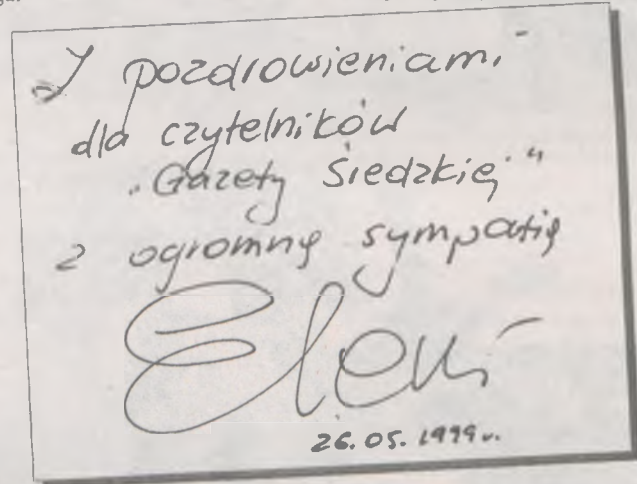 Z pozdrowieniami
dla czytelników
„Gazety Średzkiej"
z ogromną sympatią
Eleni
26.05.1999 r.